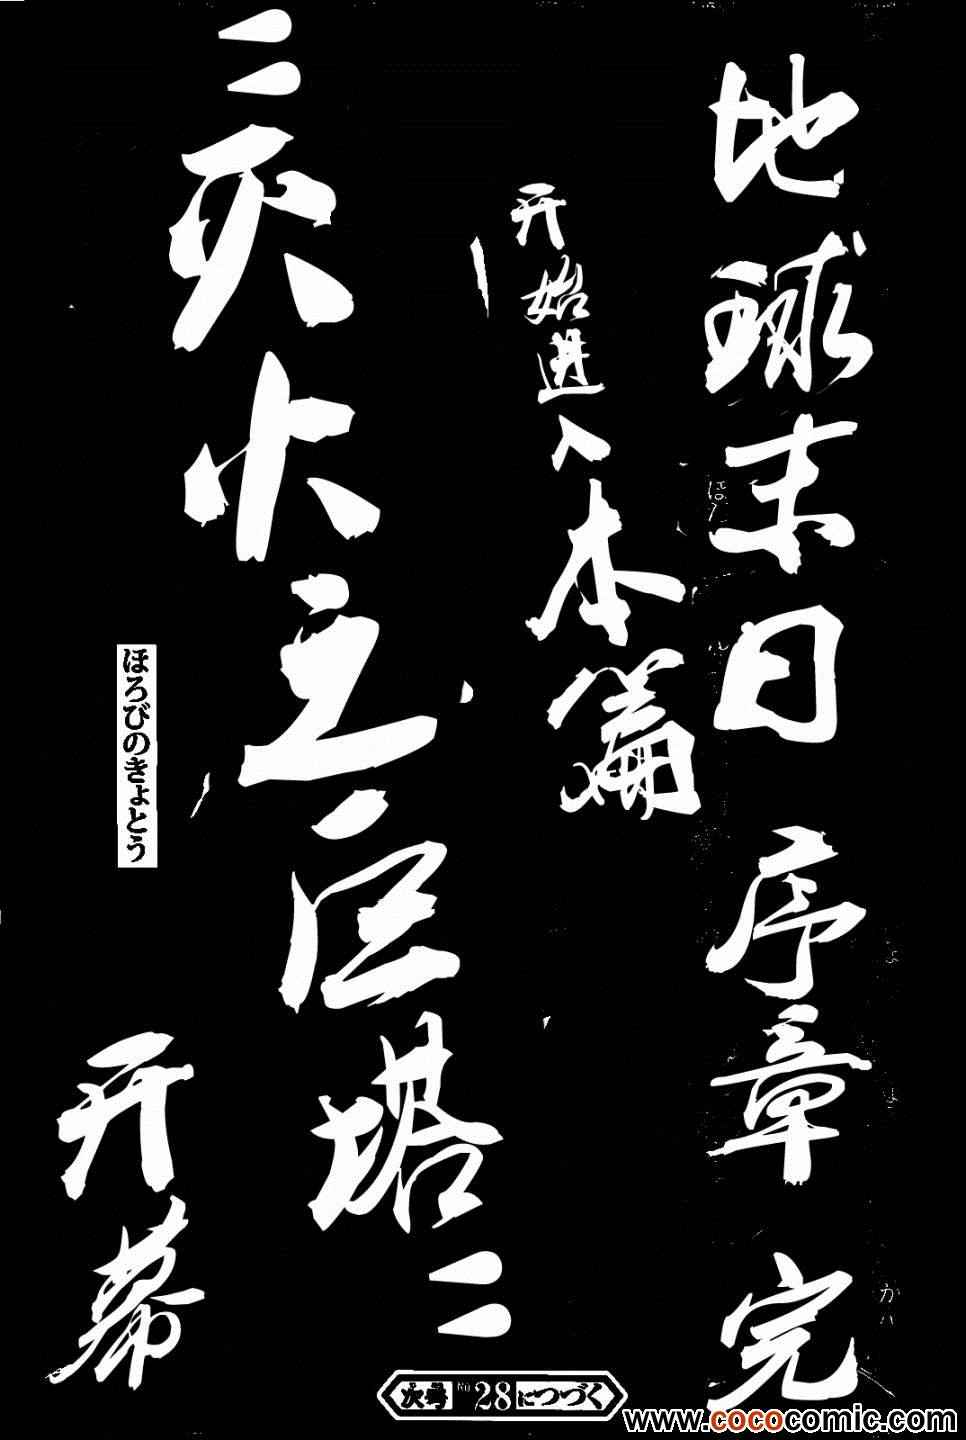 地球末日 序章 完
开始进入本篇
〝灭亡之巨塔〟
ほろびのきょとう
开幕
次号No.28につづく
www.cococomic.com